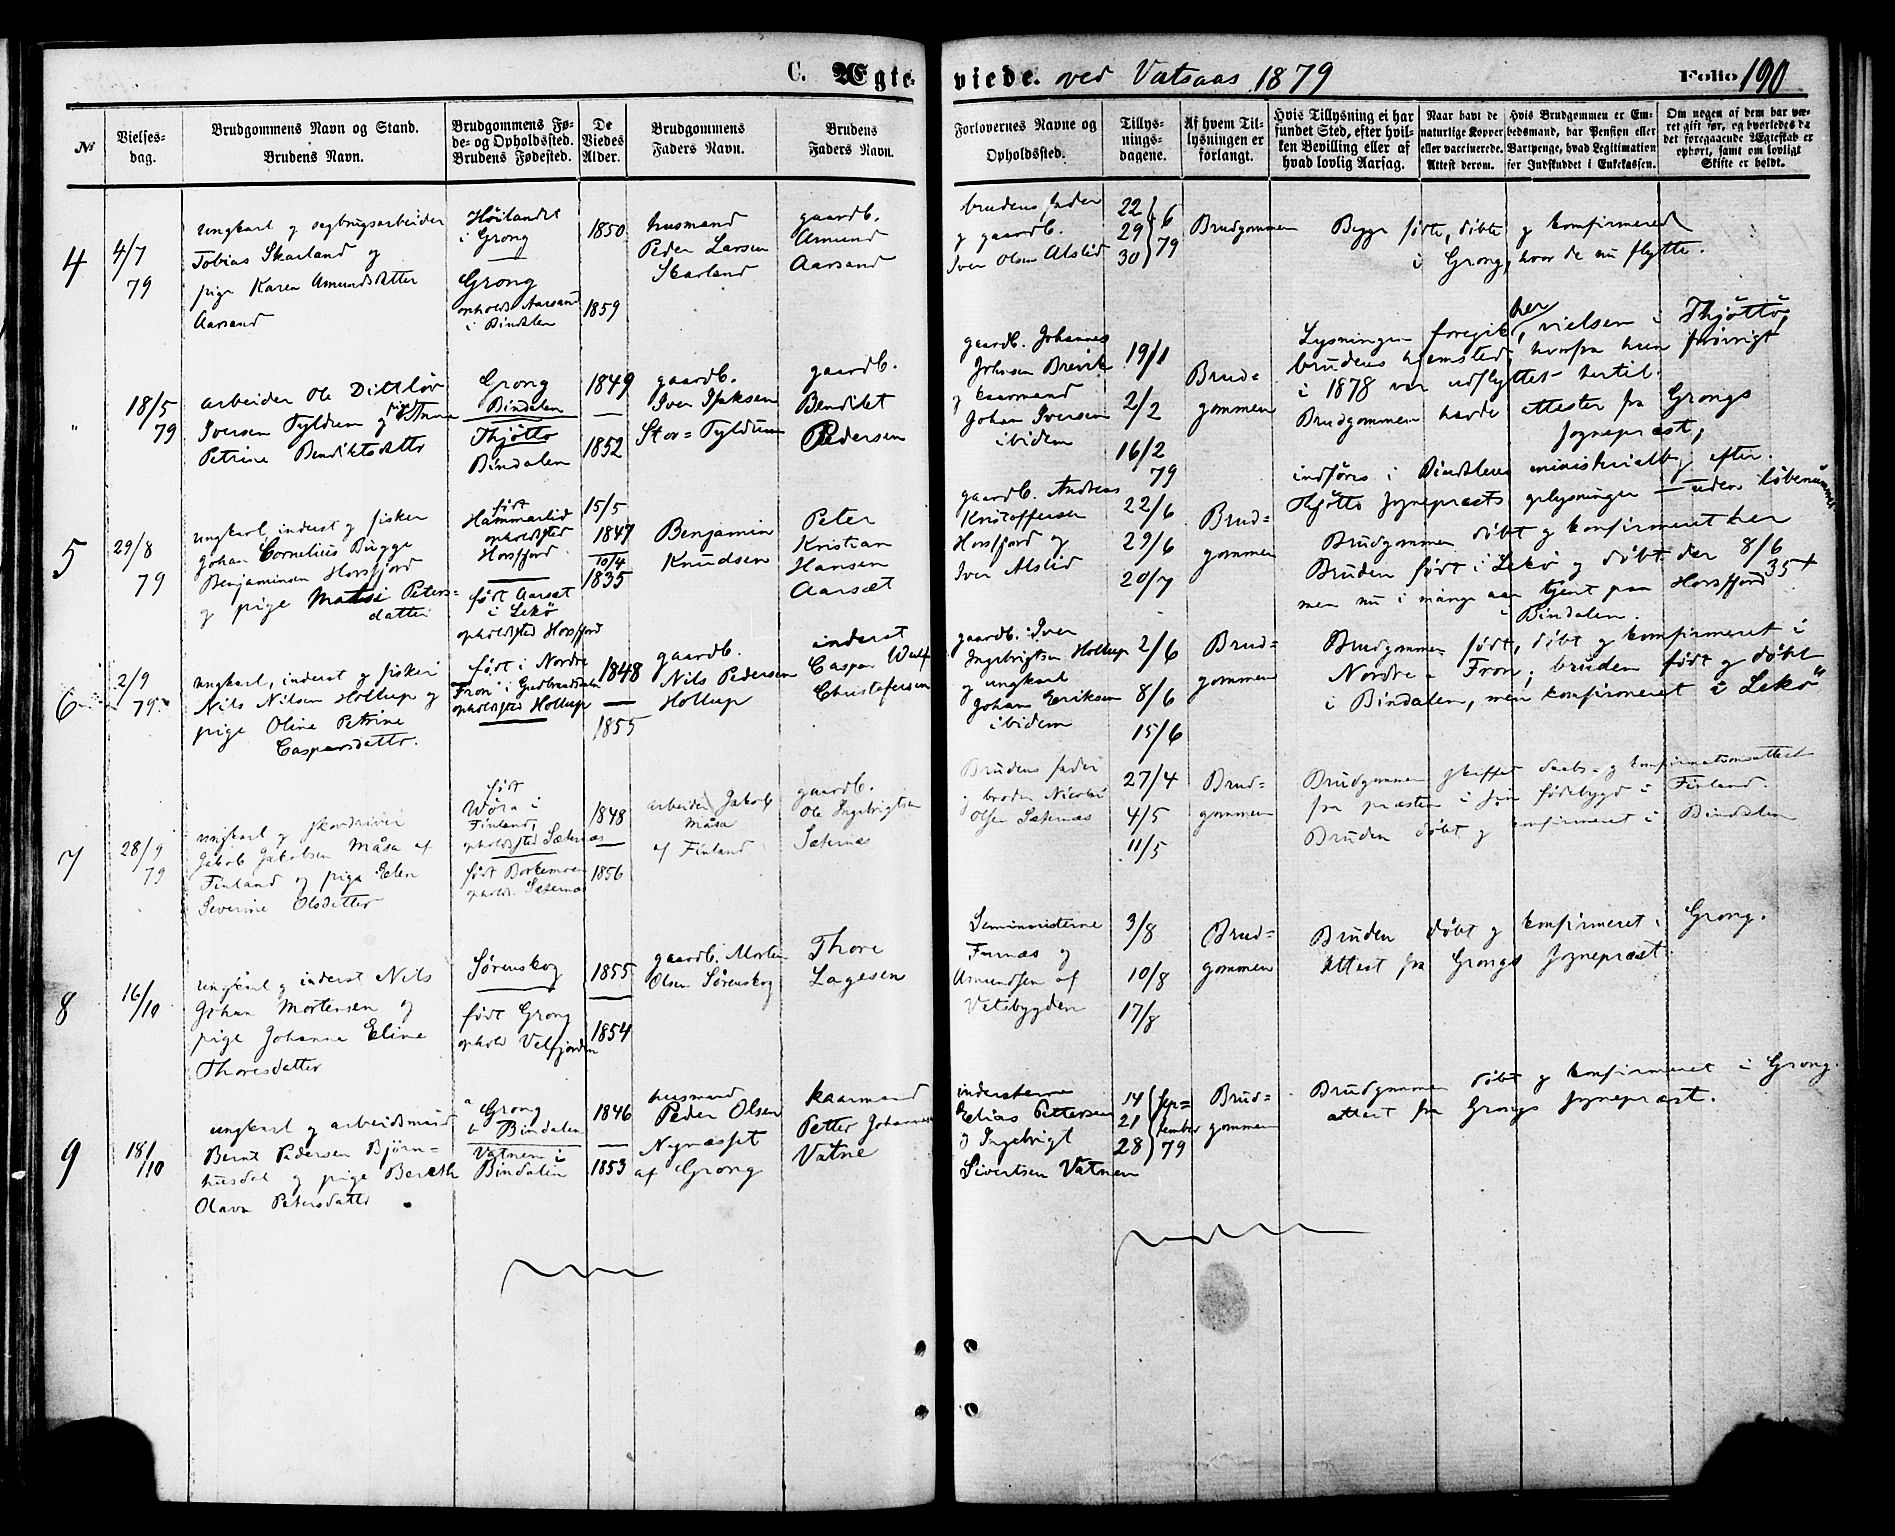 C. Ægte-
viede. ved Vatsaas 1879
Folio 190
№
Vielses-
dag.
Brudgommens Navn og Stand.
Brudens Navn.
Brudgommens Fø-
de- og Opholdssted.
Brudens Fødested.
De
Viedes
Alder.
Brudgommens
Faders Navn.
Brudens
Faders Navn.
Forlovernes Navne og
Opholdssted.
Tillys-
nings-
dagene.
Af hvem Til-
lysningen er
forlangt.
Hvis Tillysning ei har
fundet Sted, efter hvil-
ken Bevilling eller af
hvad lovlig Aarsag.
Naar havt de
naturlige Kopper
eller vaccinerede.
Attest derom.
Hvis Brudgommen er Em-
bedsmand, har Pension eller
Vartpenge, hvad Legitimation
for Indskuddet i Enkekassen.
Om nogen af dem har væ-
ret gift før, og hvorledes da
det foregaaende Ægteskab er
ophørt, samt om lovligt
Skifte er holdt.
4
4/7
79
ungkarl og sagbrugsarbeider
Tobias Skarland og
pige Karen Amundsdatter
Aarsand
Höilandet
i Grong
Grong
opholds. Aarsand
i Bindalen
1850
1859
husmand
Peder Larsen
Skarland
gaardb.
Amund
Aarsand
brudens fader
og gaardb.
Iver Olsen Alstid
22
29
30
6
79
Brudgommen
Begge födte, döbte og konfirmered
i Grong, hvor de nu flytte.
"
18/5
79
arbeider Ole Dittlöv
Iversen Tyldum og pige Anne
Petrine Bendiktsdatter
Grong
Bindalen
Thjötto
Bindalen
1849
1852
gaardb.
Iver Isaksen
Stor=Tyldum
gaardb.
Bendikt
Pedersen
gaardb. Johannes
Johnsen Brevik
og kaarmand
Johan Iversen
ibidem
19/1
2/2
16/2
79
Brud=
gommen
Lysningen foregik her, vielsen i Thjöttö,
brudens hjemsted, hvorfra hun forövrigt
i 1878 var udflyttet hertil.
Brudgommen havde attester fra Grongs
sognepræst;
indföres i Bindalens ministerialbog efter
Thjöttö sognepræsts oplysninger – uden löbenummer
5
29/8
79
ungkarl, inderst og fisker
Johan Cornelius Bugge
Benjaminsen Horsfjord
og pige Peters=
datter
født
Hammarlid
opholdssted
Horsfjord
født Aarsæt
i Lekø
opholdssted Horsfjord
15/5
1847
10/4
1835
Benjamin
Knudsen
Peter
Kristian
Hansen
Aarsæt
gaardb. Andreas
Kristoffersen
Horsfjord og
Iver Alstid
22/6
29/6
20/7
Brud=
gommen
Brudgommen döbt og konfirmeret her
Bruden født i Lekø og döbt der 8/6
35
men nu i mange aar tjent paa Horsfjord
i Bindalen.
6
2/9
79
ungkarl, inderst og fisker
Nils Nilsen Hollup og
pige Oline Petrine
Caspersdatter.
født i Nordre
Fron i Gudbrandsdalen
opholdssted Hollup
1848
1855
gaardb.
Nils Pedersen
Hollup
inderst
Casper Wulf
Christofersen
gaardb. Iver
Ingebrigtsen Hollup
og ungkarl
Johan Eriksen
ibidem
2/6
8/6
15/6
Brud=
gommen
Brudgommen født, döbt og konfirmeret i
Nordre Fron; bruden født og döbt
i Bindalen, men konfirmeret i Lekö
7
28/9
79
ungkarl og skovdriver
Jakob Jakobsen Måsa af
Finland og pige Elen
Severine Olsdatter
født
Wöra i
Finland,
opholdssted Sæternæs
født Borkemoen
opholds. Sæternæs
1848
1856
arbeider Jakob
Måsa
af Finland
gaardb.
Ole Ingebrigtsen
Sæternæs
Brudens fader
og broder Nicolai
Olsen Sæternæs
27/4
4/5
11/5
Brud=
gommen
Brudgommen skaffet daabs- og konfirmationsattest
fra præsten i sin födebygd i Finland.
Bruden döbt og konfirmeret i Bindalen
8
16/10
ungkarl og inderst Nils
Johan Mortensen og
pige Johanna Eline
Thoresdatter
Sørenskog
født Grong
ophold Velfjorden
1855
1854
gaardb. Morten
Olsen Sørenskog
Thore
Lagesen
Seminaristerne
Furnæs og
Amundsen af
Vatsbygden
3/8
10/8
17/8
Brud=
gommen
Bruden döbt og konfirmeret i Grong.
Attest fra Grongs sognepræst.
9
18/10
ungkarl og arbeidsmand
Bernt Pedersen Björn=
husdal og pige Bereth
Olava Petersdatter
a Grong
b Bindalen
Vatnem i
Bindalen
1846
1853
husmand
Peder Olsen
af Grong
kaarmand
Petter Johannesen
Vatne
inderstene
Elias Pettersen
og Ingebrigt
Sivertsen Vatnem
14
21
28
sep=
tember
79
Brud=
gommen
Brudgommen döbt og konfirmeret i Grong.
attest fra Grongs sognepræst.